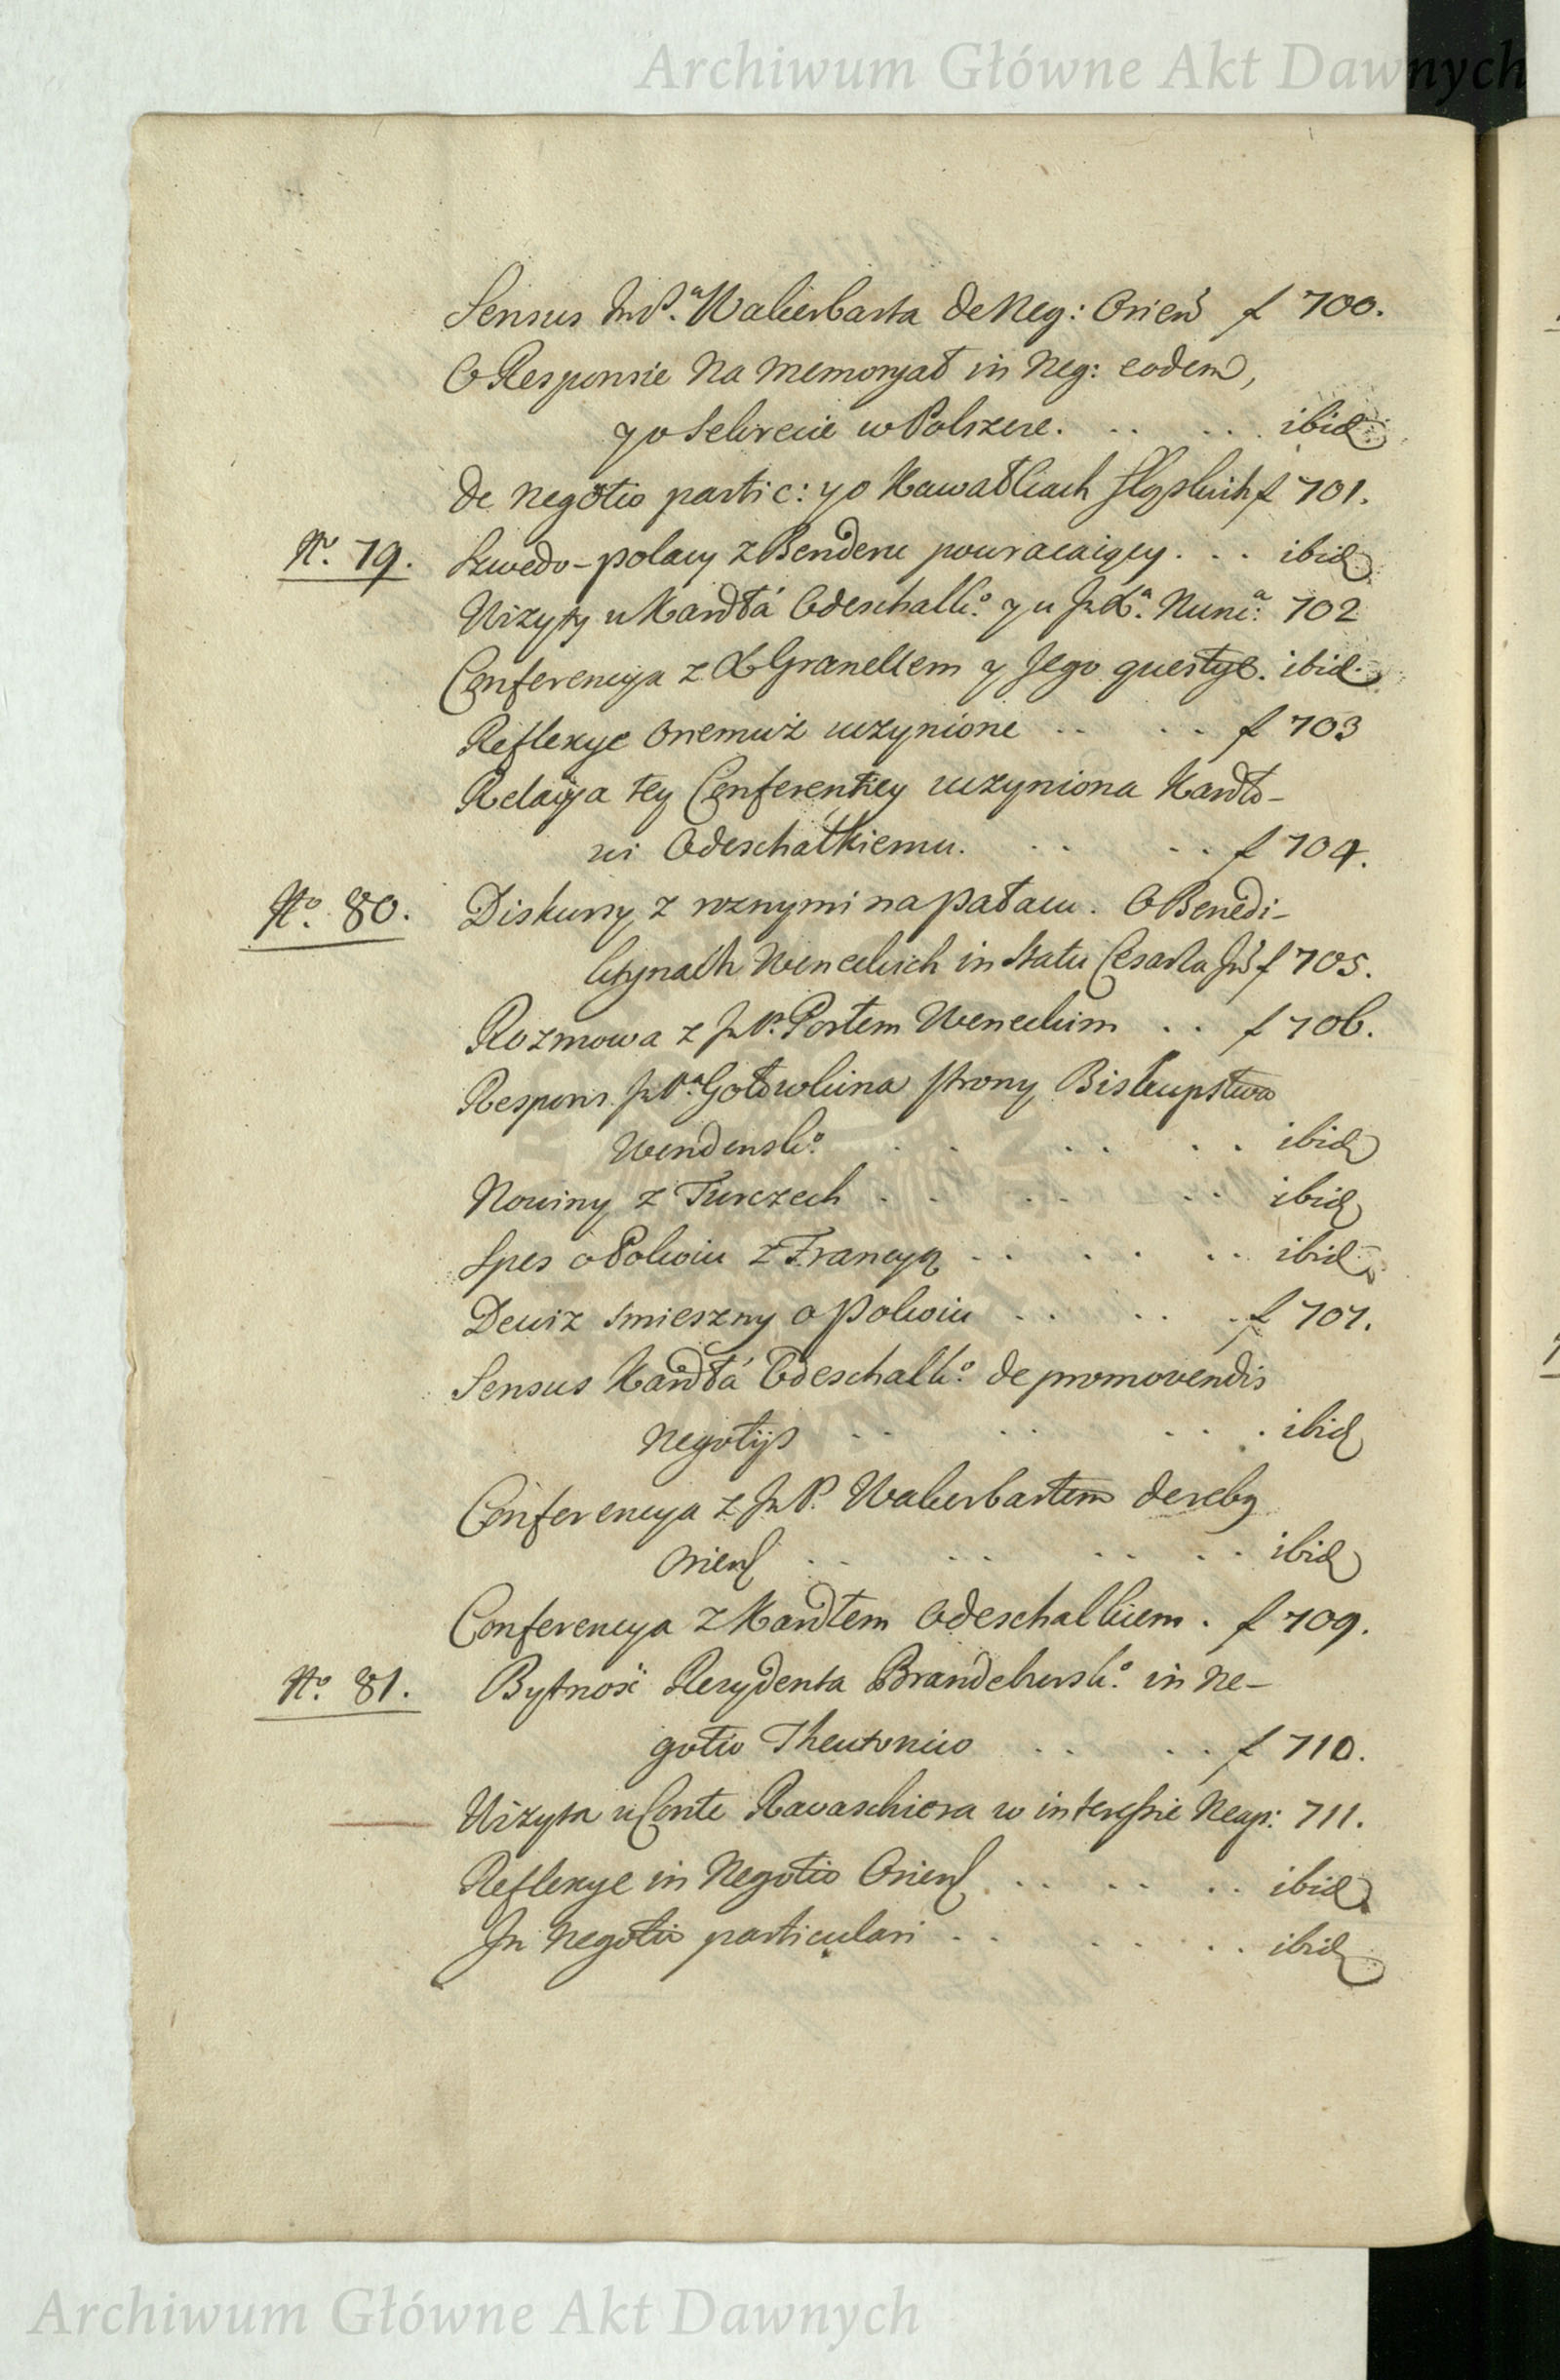 Archiwum Główne Akt Dawnych
Sensus JmP.ª Wakierbarta de Neg: Orien f 700.
O Responsie Na memoryał in Neg: eodem,
y o Sekrecie w Polszcze. . . . . ibid
De negotio partic: y o Kawałkach Sląskich f 701.
Nº. 79. Szwedo-polacy z Benderu powracaiący. . . ibid
Wizyty u Kardła Odeschalkº. y u JmX.ª Nunc.ª 702
Conferencya z X Granellem y Jego questye. ibid.
Reflexye onemuż uczynione . . . . f 703
Relacya tey Conferentiey uczyniona Kardło-
wi Odeschalkiemu. . . . . f 704.
Nº. 80. Diskursy z roznymi na pałacu. O Benedi-
ktynach Weneckich in Statu Cesarza Jm f 705.
Rozmowa z JmP. Posłem Weneckim . . f 706.
Respons JmP.ª Gołowkina strony Biskupstwa
Wendenskº. . . . . . . ibid
Nowiny z Turczech . . . . . . ibid
Spes o Pokoiu z Francyą . . . . . . ibid
Dewiz smieszny o pokoiu . . . . . f 707.
Sensus Kardła Odeschalkº. de promovendis
negotijs . . . . . . . ibid
Conferencya z JmP. Wakerbartem de reby
Orien . . . . . . . . ibid
Conferencya z Kardłem Odeschalkiem . f 709.
Nº. 81. Bytność Rezydenta Brandeburskº. in Ne-
gotio Theutonico . . . . f 710.
Wizyta u Conte Ravaschiera w interessie Neap: 711.
Reflexye in Negotio Orien . . . . . . ibid
In negotio particulari . . . . . . ibid
Archiwum Główne Akt Dawnych